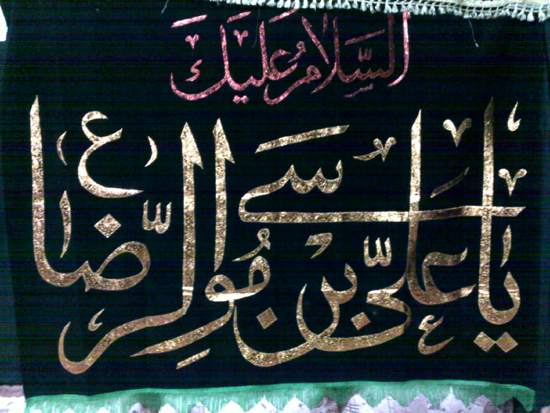 السَّلامُ عَلیكَ
یا عَليَّ بنَ مُوسَی الرِّضا ع